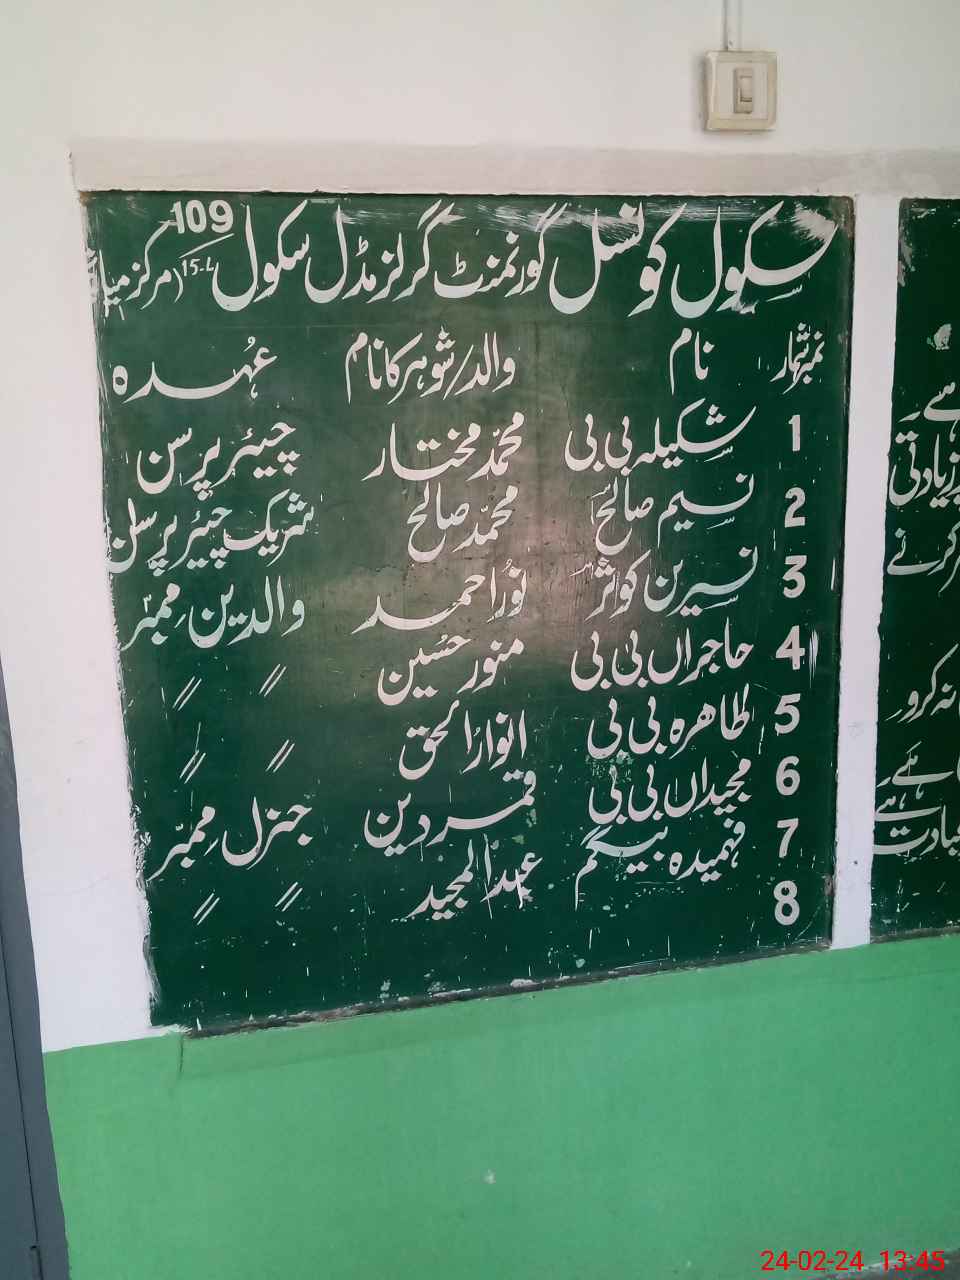 سکول کونسل گورنمنٹ گرلز مڈل سکول 109/15-L (مرکز
نمبر شمار نام والد/شوہر کا نام عُہدہ
1 شکیلہ بی بی محمّد مختار چیئر پرسن
2 نسیم صالح محمّد صالح شریک چیئر پرسن
3 نسرین کوثر نُور احمد والدین ممبر
4 حاجراں بی بی منور حسُین 〃 〃
5 طاھرہ بی بی انوارالحق 〃 〃
6 مجیداں بی بی قمردین جنرل ممبر
7 فہمیدہ بیگم عبدالمجید 〃 〃
8
ہے۔
زیادتی
کرنے
نہ کرو
ہے
ہے
عبادت
24-02-24 13:45